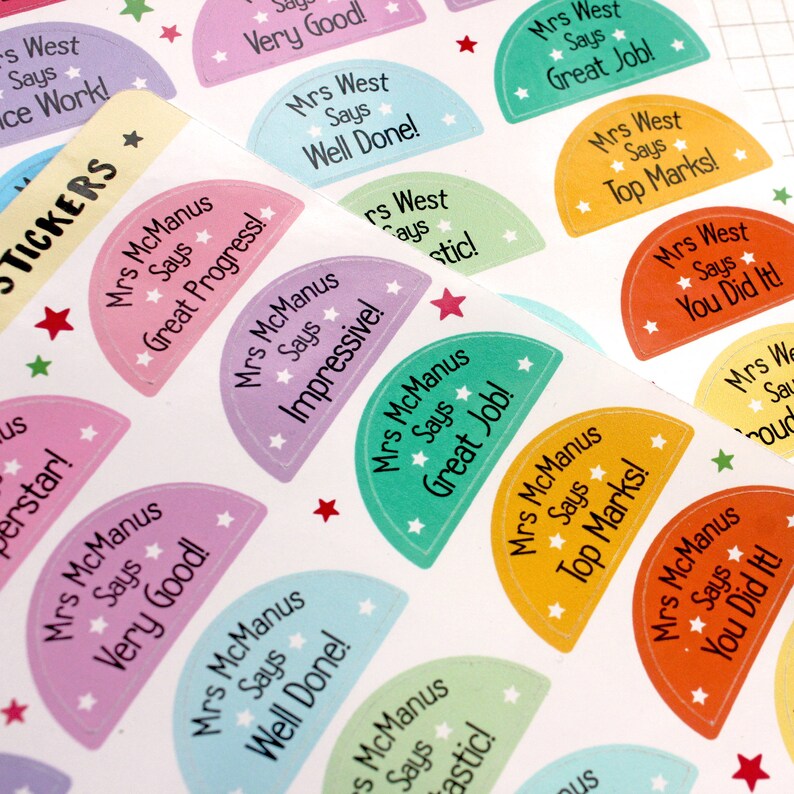 Mrs West
Says
Very Good!
Mrs West
Says
Great Job!
Says
Work!
Mrs West
Says
Well Done!
Mrs West
Says
Top Marks!
Mrs West
Says
Mrs West
Says
You Did It!
Mrs We
STICKERS
Mrs McManus
Says
Great Progress!
Mrs McManus
Says
Impressive!
Mrs McManus
Says
Great Job!
Mrs McManus
Says
Top Marks!
Mrs McManus
Says
You Did It!
Mrs McManus
Says
Very Good!
Mrs McManus
Says
Well Done!
Mrs McManus
Says